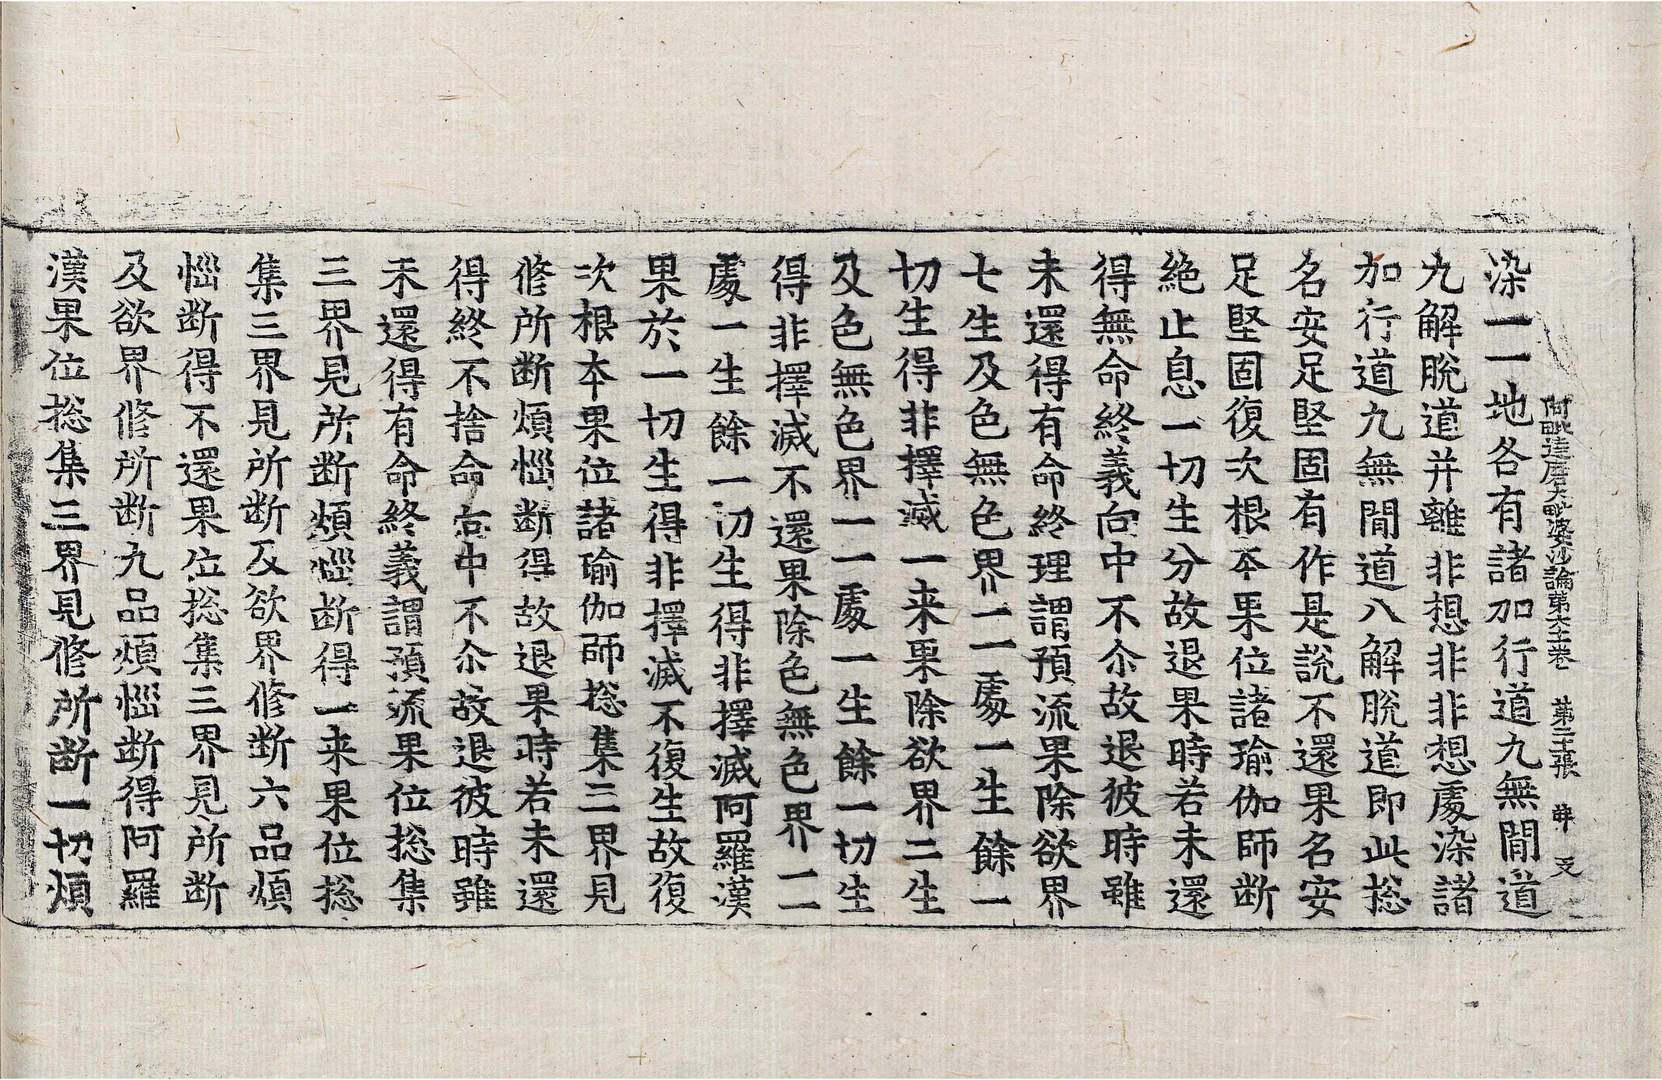 阿毗達磨大毗婆沙論第六十五卷　第二十張
染一一地各有諸加行道九無閒道
九解脫道并離非想非非想處染諸
加行道九無閒道八解脫道即此捴
名安足堅固有作是說不還果名安
足堅固復次根夲果位諸瑜伽師断
絶止息一切生分故退果時若未還
得無命終義向中不尒故退彼時雖
未還得有命終理謂預流果除欲界
七生及色無色界一一處一生餘一
切生得非擇滅一来果除欲界二生
及色無色界一一處一生餘一切生
得非擇滅不還果除色無色界一一
處一生餘一切生得非擇滅阿羅漢
果於一切生得非擇滅不復生故復
次根夲果位諸瑜伽師捴集三界見
修所断煩惱断得故退果時若未還
得終不捨命向中不尒故退彼時雖
未還得有命終義謂預流果位捴集
三界見所断煩惱断得一来果位捴
集三界見所断及欲界修断六品煩
惱断得不還果位捴集三界見所断
及欲界修所断九品煩惱断得阿羅
漢果位捴集三界見修所断一切煩